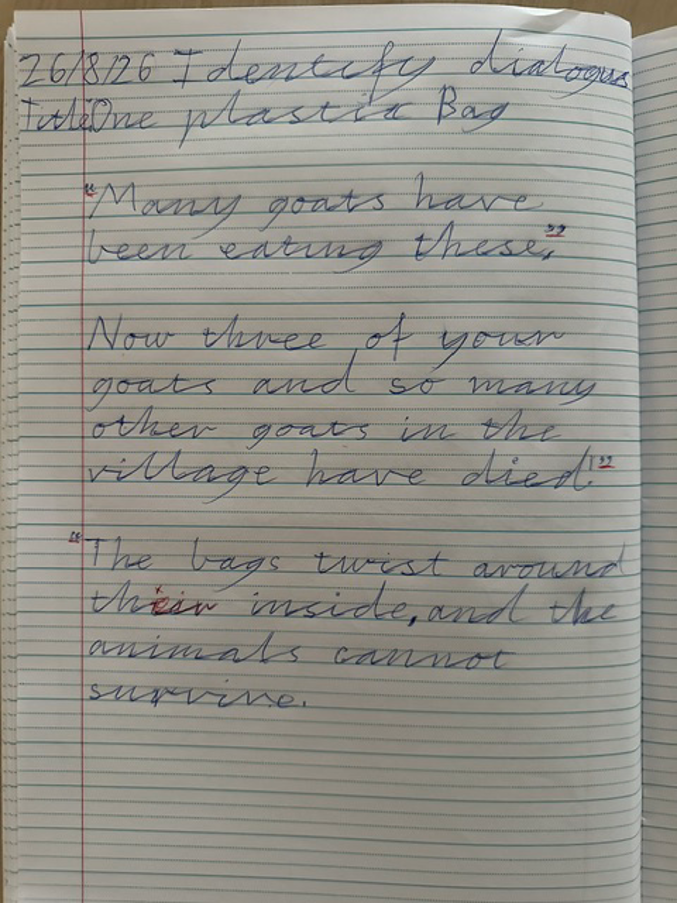 26/8/26 Identify dialogus
Title One plastic Bag
"Many goats have
been eating these,"
Now three of your
goats and so many
other goats in the
village have died!"
"The bags twist around
their inside, and the
animals cannot
survive.